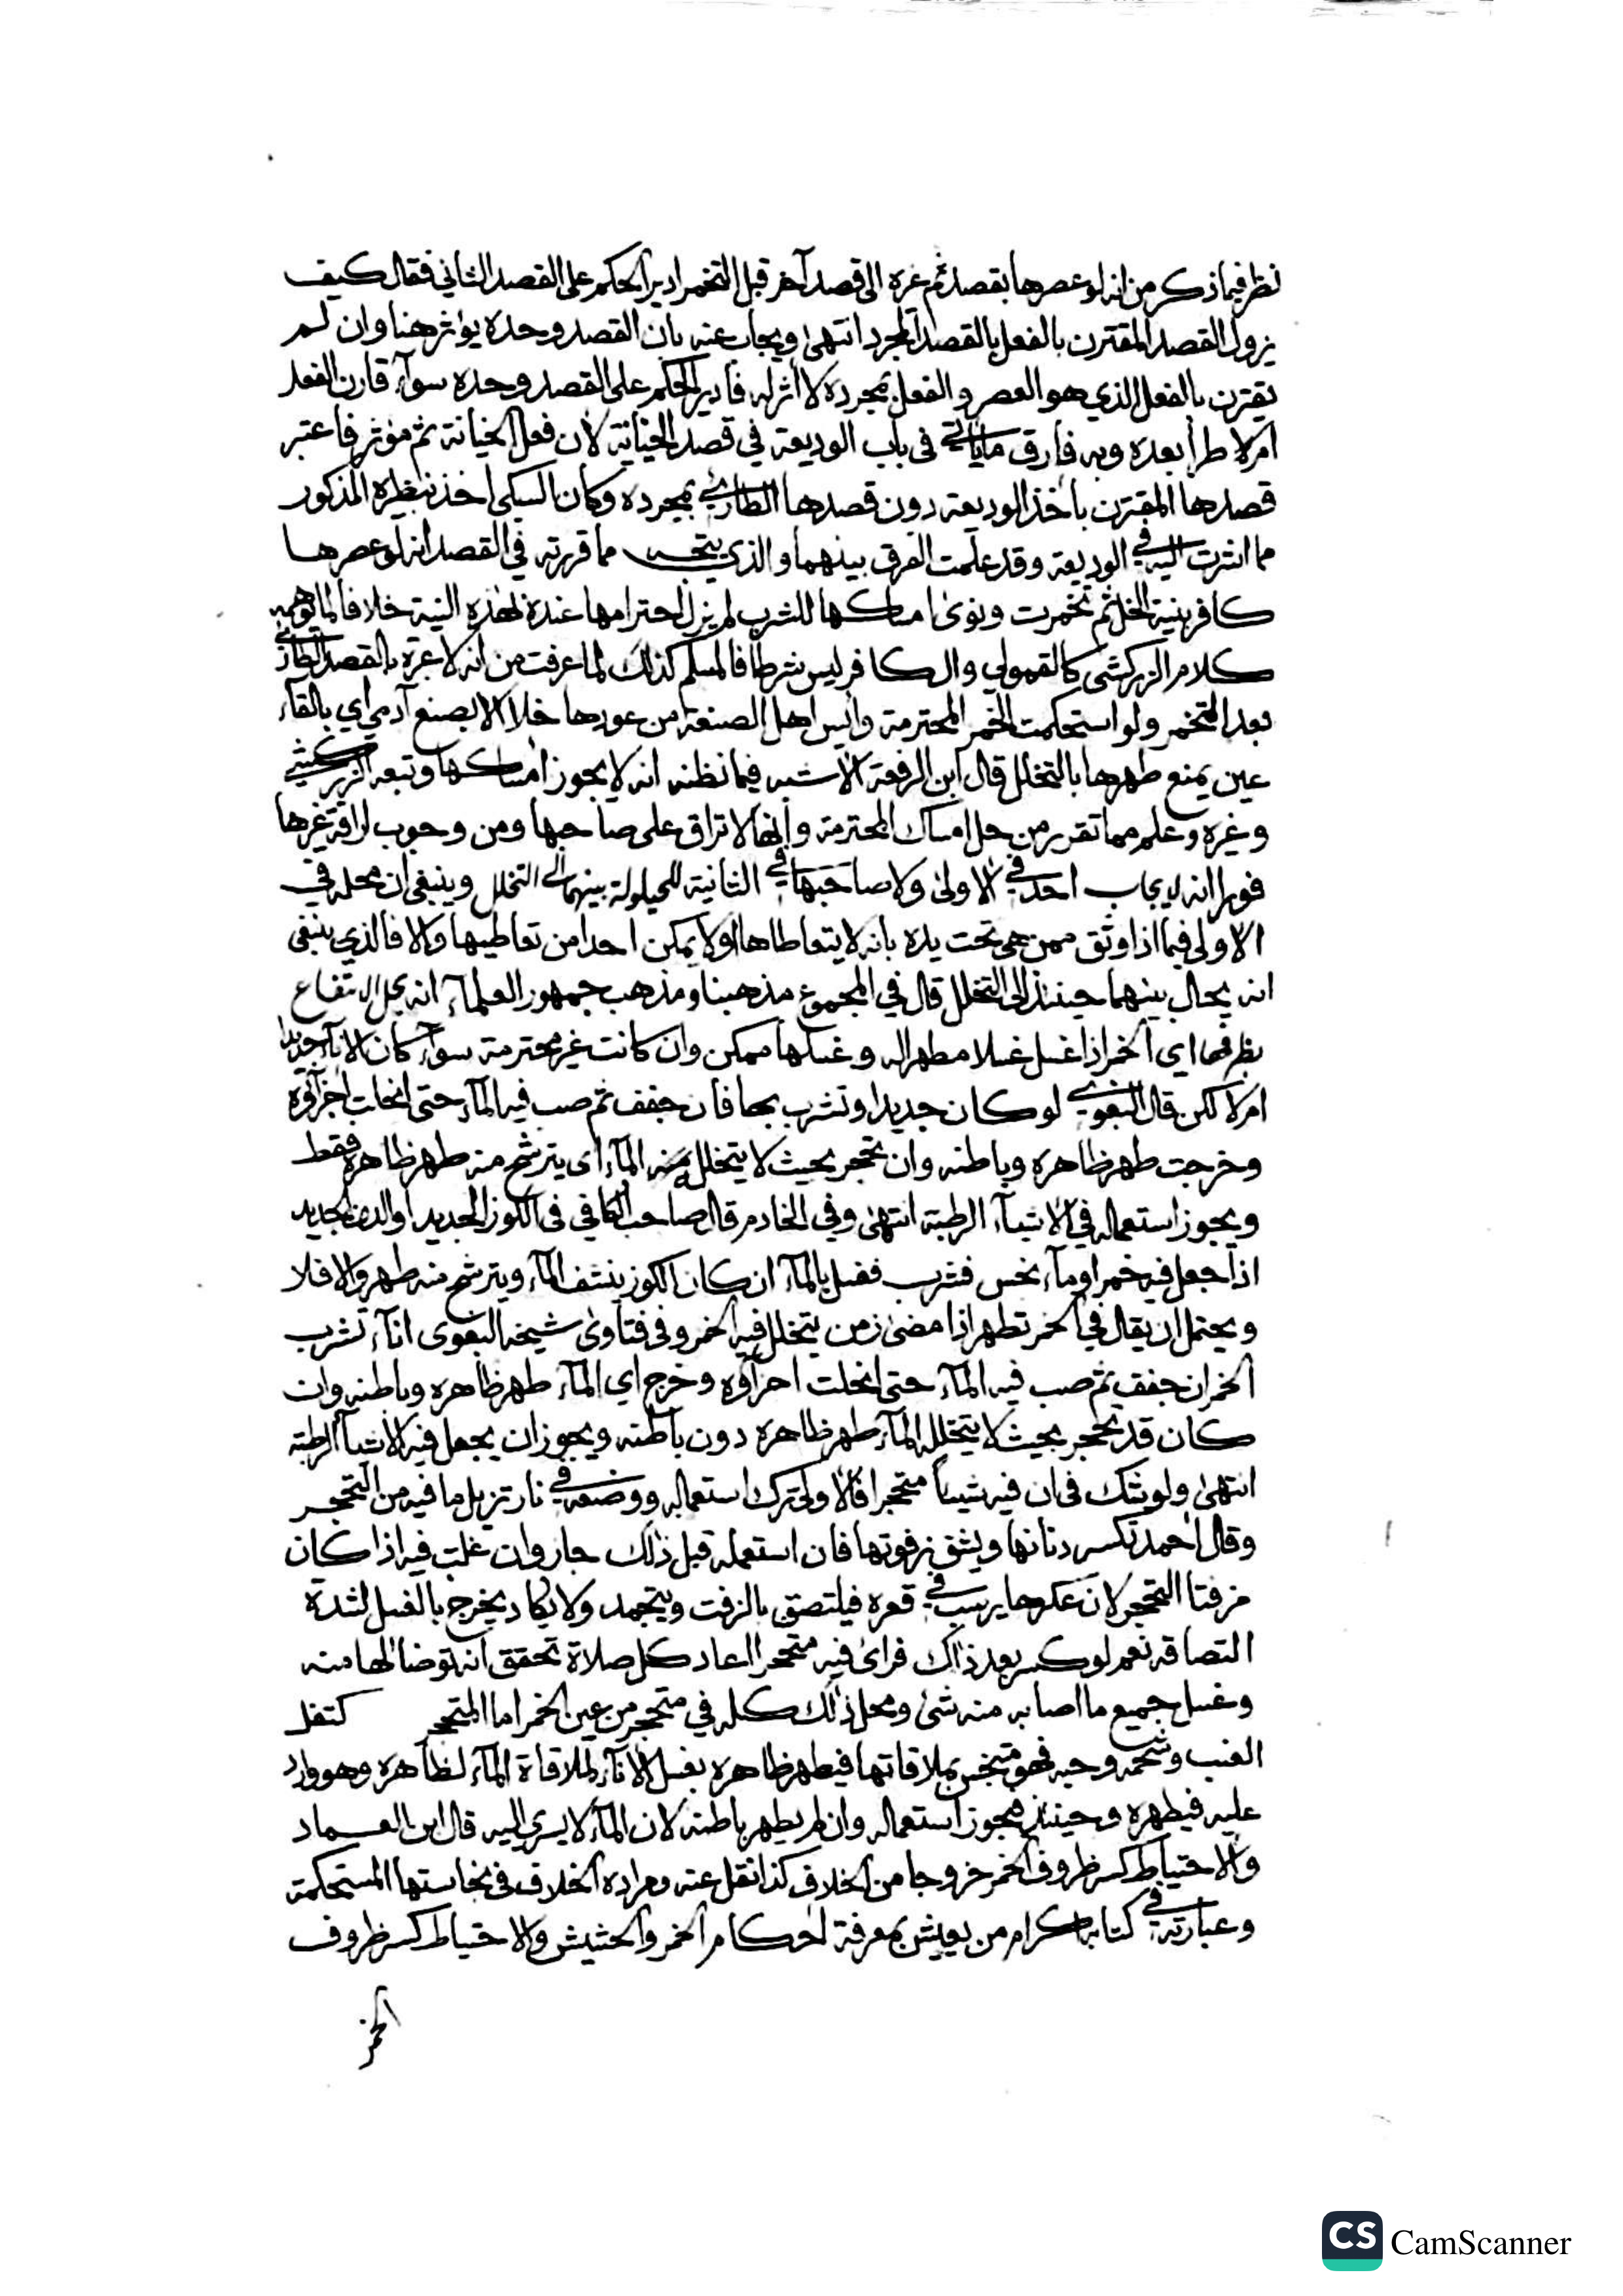 نظر فيما ذكر من انه لو عصرها بقصد ثم غيره الى قصد آخر قبل التخمر ادير الحكم على القصد الثاني فقال كيف
يزول القصد المقترن بالفعل بالقصد المجرد انتهى ويجاب عنه بان القصد وحده يؤثر هنا وان لم
يقترن بالفعل الذي هو العصر والفعل بمجرده لا أثر له فأدير الحكم على القصد وحده سوآء قارن الفعل
ام لا طرأ بعده وبه فارق ما يأتي في باب الوديعة في قصد الخيانة لأن فعل الخيانة ثم مؤثر فاعتبر
قصدها المقترن بأخذ الوديعة دون قصدها الطارئ بمجرده وكأن السبكي اخذ نظيره المذكور
مما اشرت اليه في الوديعة وقد علمت الفرق بينهما والذي يتجه مما قررته في القصد انه لو عصرها
كافر بنية الخل ثم تخمرت ونوى امساكها للشرب لم يزل احترامها عنده بهذه النية خلافا لما يوهمه
كلام الزركشي كالقمولي والكافر ليس شرطا فالمسلم كذلك لما عرفت من انه لا عبرة بالقصد الطارئ
بعد التخمر ولو استحكمت الخمر المحترمة وأيس اهل الصنعة من عودها خلا الا بصنع آدمي اي بالقاء
عين يمنع طهرها بالتخلل قال ابن الرفعة الاشبه فيما نظنه انه لا يجوز امساكها وتبعه الزركشي
وغيره وعلم مما تقرر من حل امساك المحترمة وانها لا تراق على صاحبها ومن وجوب اراقة غيرها
فورا انه لا يجاب احد في الاولى ولا صاحبها في الثانية للحيلولة بينهما الى التخلل وينبغي ان محله في
الاولى فيما اذا وثق ممن هي تحت يده بانه لا يتعاطاها او لا يمكن احدا من تعاطيها والا فالذي ينبغي
انه يحال بينهما حينئذ الى التخلل قال في المجموع مذهبنا ومذهب جمهور العلمآء انه يحل الانتفاع
بظرفها اي الخمر اذا غسل غسلا مطهرا له وغسلها ممكن وان كانت غير محترمة سوآء كان الانآء جديدا
ام لا لكن قال البغوي لو كان جديدا وتشرب بها فان جفف ثم صب فيه المآء حتى انحلت اجزآؤه
وخرجت طهر ظاهره وباطنه وان تحجر بحيث لا يتخلل منه المآء اي يترشح منه طهر ظاهره فقط
ويجوز استعماله في الاشيآء الرطبة انتهى وفي الخادم قال صاحب الكافي في الكوز الجديد او الدن الجديد
اذا جعل فيه خمر او مآء نجس فشرب فغسل بالمآء ان كان الكوز ينشف المآء ويترشح منه طهر والا فلا
ويحتمل ان يقال في الخمر تطهر اذا مضى زمن يتخلل فيه الخمر وفي فتاوى شيخه البغوى انآء تشرب
الخمر ان جفف ثم صب فيه المآء حتى انحلت اجزآؤه وخرج اي المآء طهر ظاهره وباطنه وان
كان قد تحجر بحيث لا يتخلله المآء طهر ظاهره دون باطنه ويجوز ان يجعل فيه الاشيآء الرطبة
انتهى ولو شك في ان فيه شيئا متحجرا فالاولى ترك استعماله ووضعه في نار تزيل ما فيه من التحجر
وقال احمد تكسر دنانها ويشق زقوتها فان استعمله قبل ذلك جاز وان غلب فيه اذا كان
مزفتا التحجر لان عكرها يرسب في قعره فيلتصق بالزفت ويتجمد ولا يكاد يخرج بالغسل لشدة
التصاقه نعم لو كسر بعد ذاك فراى فيه متحجرا اعاد كل صلاة تحقق انه توضا لها منه
وغسل جميع ما اصابه منه شئ ومحل ذلك كله في متحجر من عين الخمر اما المتحجر كتفل
العنب وشحمه وحبه فهو متنجس بملاقاتها فيطهر ظاهره بغسل الانآء لملاقاة المآء لظاهره وهو وارد
عليه فيطهره وحينئذ فيجوز استعماله وان لم يطهر باطنه لان المآء لا يسرى اليه قال ابن العماد
والاحتياط كسر ظروف الخمر خروجا من الخلاف كذا نقل عنه ومراده الخلاف في نجاستها المستحكمة
وعبارته في كتابه اكرام من يعيش بمعرفة احكام الخمر والحشيش والاحتياط كسر ظروف
الخمر
CS CamScanner